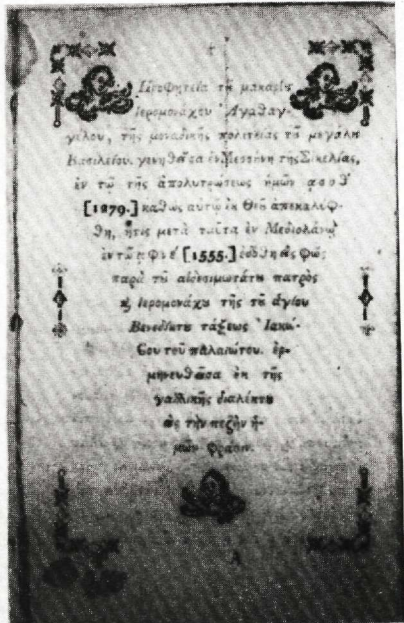 Προφητεία τȣ̃ μακαρίȣ
ἱερομονάχου Ἀγαθαγ-
γέλου, τῆς μοναδικῆς πολιτείας τȣ̃ μεγάλȣ
Βασιλείου. γενηθεῖσα ἐν Μεσσήνῃ τῆς Σικελίας,
ἐν τῷ τῆς ἀπολυτρώσεως ἡμῶν ασοθʹ
[1279.] καθὼς αὐτῷ ἐκ Θεȣ̃ ἀπεκαλύφ-
θη, ἥτις μετὰ ταῦτα ἐν Μεδιολάνῳ
ἐν τῷ αφνεʹ [1555.] ἐδόθη εἰς φῶς
παρὰ τȣ̃ αἰδεσιμωτάτȣ πατρὸς
ϗ ἱερομονάχȣ τῆς τȣ̃ ἁγίου
Βενεδίκτȣ τάξεως Ἰακώ-
ϐου τοῦ παλαιώτου. ἑρ-
μηνευθεῖσα ἐκ τῆς
γαλλικῆς διαλέκτȣ
εἰς τὴν πεζὴν ἡ-
μῶν φράσιν.
Α